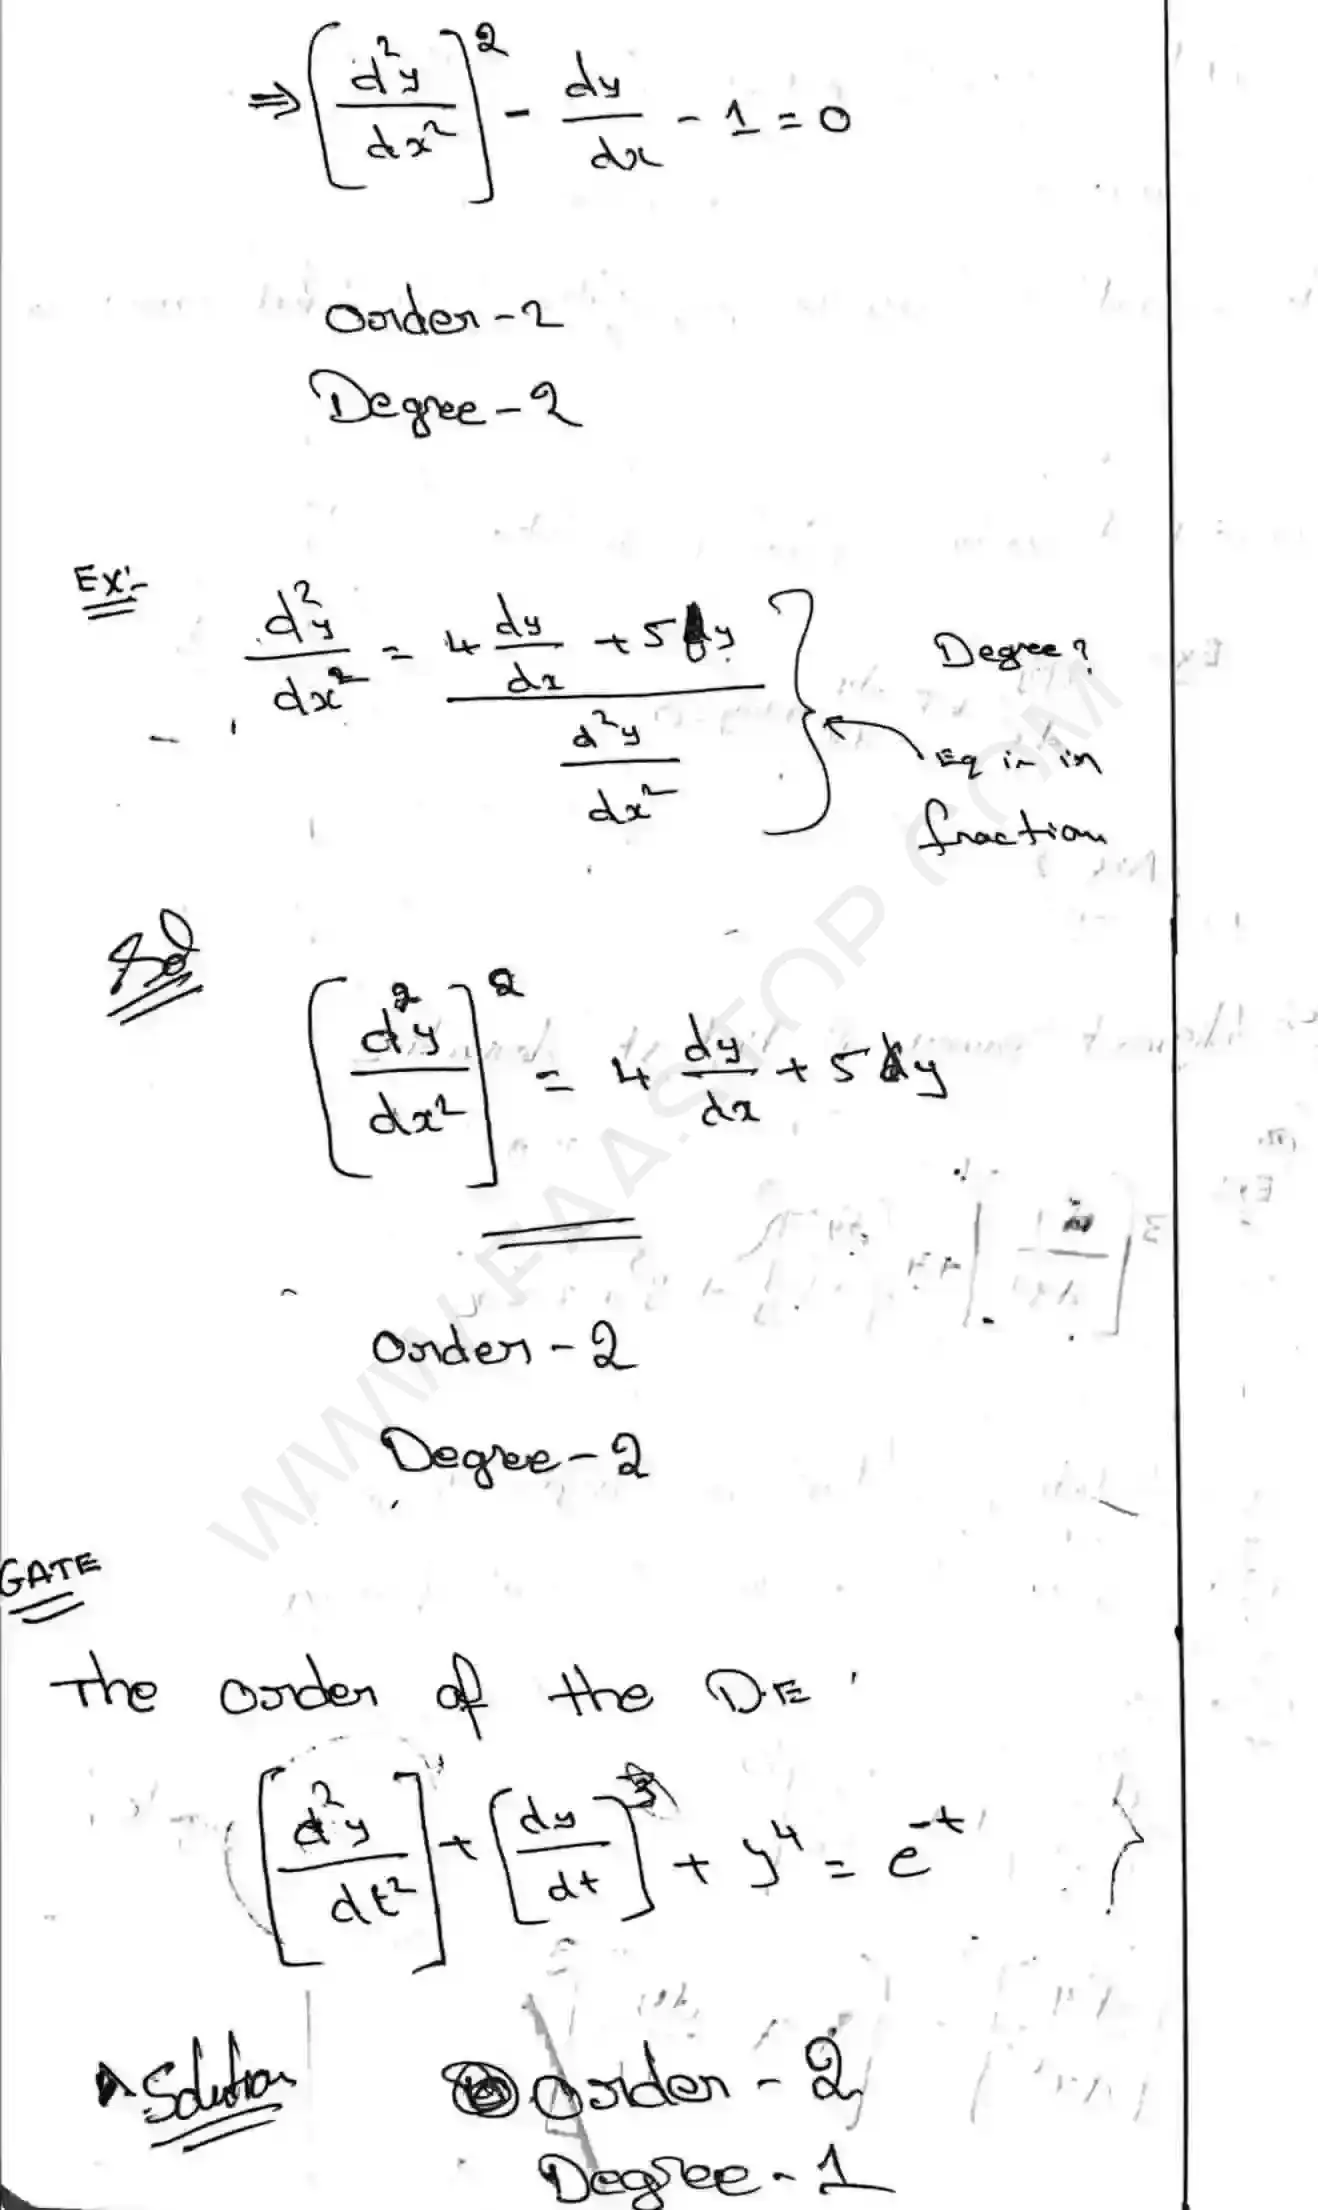 ⇒ [d²y/dx²]² - dy/dx - 1 = 0
Order - 2
Degree - 2
Ex:-
d²y/dx² = (4 dy/dx + 5y) / (d²y/dx²)
Degree?
Eq is in
fraction
Sol
[d²y/dx²]² = 4 dy/dx + 5y
Order - 2
Degree - 2
GATE
The order of the D.E
[d²y/dt²] + [dy/dt]³ + y⁴ = e⁻ᵗ
Solution
Order - 2
Degree - 1
WWW.FAASTOP.COM